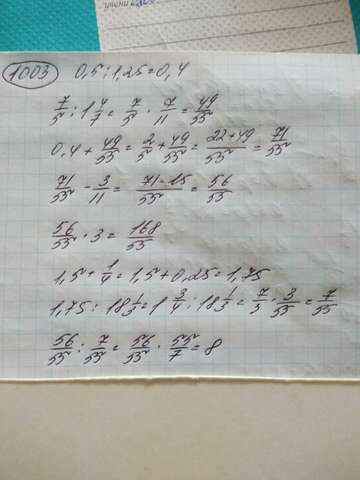 учени
1003 0,5 : 1,25 = 0,4
7/5 : 1 4/7 = 7/5 · 7/11 = 49/55
0,4 + 49/55 = 2/5 + 49/55 = 22+49/55 = 71/55
71/55 - 3/11 = 71-15/55 = 56/55
56/55 · 3 = 168/55
1,5 + 1/4 = 1,5 + 0,25 = 1,75
1,75 : 18 1/3 = 1 3/4 : 18 1/3 = 7/5 · 3/55 = 7/55
56/55 : 7/55 = 56/55 · 55/7 = 8